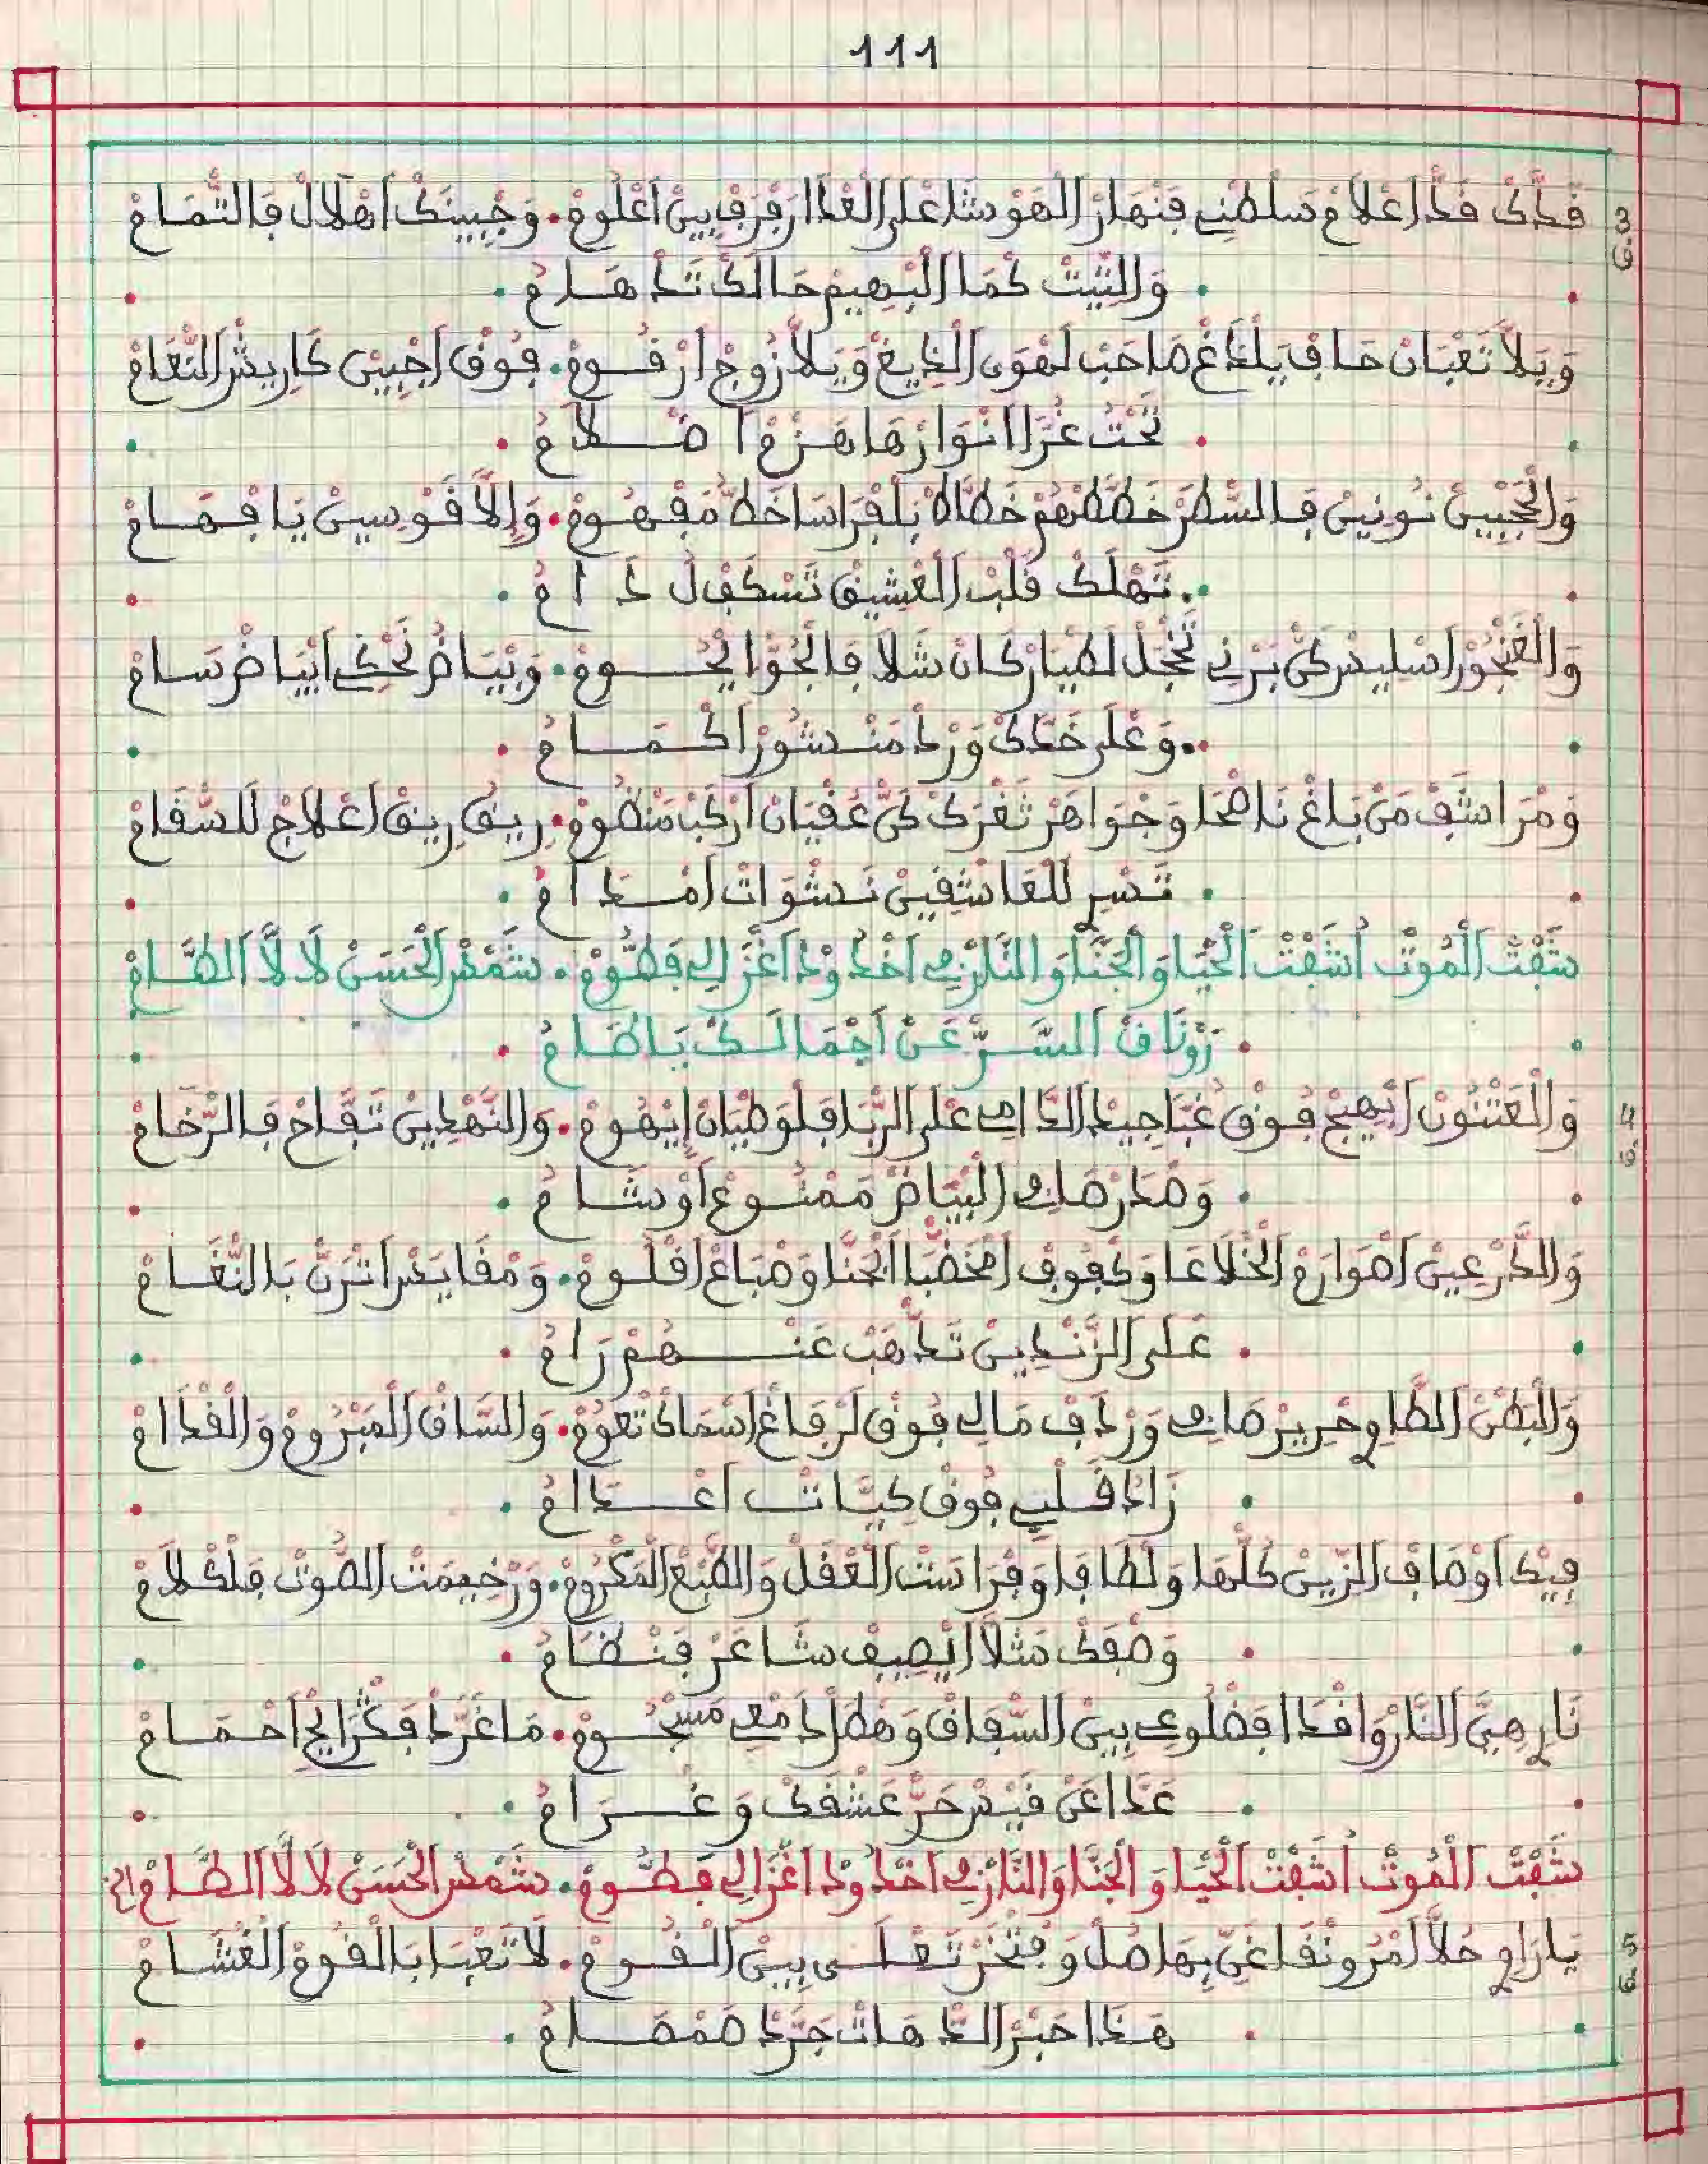 111
3 قَدَّكْ قَدْ اَعْلَامْ سَلْطْنِي فَنْهَارْ اَلْهَوْشَا عْلَى الْعْدَا رَفْرَفْ بِينْ اَعْلُومْ. وَجْبِينَكْ اَهْلَالْ فَالتّْمَامْ
ق وَالتِّيتْ كْمَا الْبْهِيمْ حَالَكْ تَدْهَامْ
وَيَلَّا تَعْبَانْ حَافْ يَلْدَغْ صَاحَبْ لَهْوَى الْدِيغْ وَيَلَّا زُوجْ اَرْقُومْ. فُوقْ اَجْبِينْ كَارِيشْ النّْعَامْ
تَحْتْ غُرَّا اَنْوَارْهَا هَزْمْ اَضْلَامْ
وَالْحَجْبِينْ نُونِينْ فَالسّْطَرْ خَطَّطْهُمْ خَطَّاطْ بَلْفْرَاسَا خَطّْ مَفْهُومْ. وَإِلَّا قَوْسِينْ يَا فْهَامْ
تَهْلَكْ قَلْبْ الْعْشِيقْ تَسْكَفْلْ دَامْ
وَالْغَنْجُورْ اَسْلِيسْ كَنْ بَرْنِي تَحْجَلْ لَطْيَارْ كَانْ شَلَّا فَالْجُوّْ اِيحُومْ. وَبْيَاضُ تَحْكِي اَبْيَاضْ سَامْ
وَعْلَى خَدَّكْ وَرْدْ مَنْشُورْ اَكْمَامْ
وَمْرَاشَفْ مَنْ بَلغْ نَاضْحَا وَجْوَاهَرْ تَغْرَكْ كَنْ عَقْيَانْ اَرْكَبْ مَنْظُومْ. رِيقْ رِيقْ اَعْلَاجْ لَلسّْقَامْ
تَسْرِ لَلْعَاشْقِينْ نَشْوَاتْ اَمْدَامْ
شَفْتْ الْمُوتْ اُشَفْتْ الْحْيَا وَالْجَنَّا وَالنَّارْ فِي اَخْدُودْ اَغْزَالِي فَطُّومْ. شَمْسْ الْحَسْنْ لَالَّا الطَّامْ
رَوْنَاقْ السَّرّْ عَنْ اَجْمَالَكْ يَا طَامْ
4 وَالْعَتْنُونْ اَبْهِيجْ فُوقْ غُبَّا جِيدْ الدَّامِي عْلَى الرّْبَا قَلْوَطْيَانْ اِيْهُومْ. وَالنَّهْدِينْ تَفَّاحْ فَالرّْخَامْ
ق وَصْدَرْ صَافِي الْبْيَاضْ مَمْنُوعْ اَوْشَامْ
وَالدَّرْعِينْ اَصْوَارَمْ الْخْلَاعَا وَكْفُوفْ اَمْخَضّْبَا اَبْحَنَّا وَصْبَاعْ اَقْلُومْ. وَمْقَايَسْ اَتْرَنّْ بَالنّْغَامْ
عَلَى الزَّنْدِينْ تَدْهَبْ عَنْهُمْ رَامْ
وَالْبْطَنْ الطَّاوِي حْرِيرْ صَافِي وَرْدَافْ مَالِي فُوقْ لَرْفَاغْ اَسْمَاكْ تْعُومْ. وَالسَّاقْ الْمَبْرُومْ وَالْقْدَامْ
زَادْ قَلْبِي فُوقْ كِيَّاتْ اَعْدَامْ
فِيكْ اَوْصَافْ الزِّينْ كُلّْهَا وَلْطَافَا وَفْرَاسَتْ الْعْقَلْ وَالطّْبَعْ الْمَكْرُومْ. وَرْخِيمَتْ الصُّوتْ فَلْكْلَامْ
وَصْفَكْ مَتْلَا اَيْصِيفْ شَاعَرْ فَنْضَامْ
نَارِ هِيَّ النَّارْ وَاقْدَا فَضْلُوعِي بِينْ السّْفَافْ وَهْطَلْ دَمْعِي مَسْجُومْ. مَا غَرَّدْ فَكْرَايْجْ اَحْمَامْ
عَدَّا عَنْ قَيْسْ حَرّْ عَشْقَكْ وَغْرَامْ
شَفْتْ الْمُوتْ اُشَفْتْ الْحْيَا وَالْجَنَّا وَالنَّارْ فِي اَخْدُودْ اَغْزَالِي فَطُّومْ. شَمْسْ الْحَسْنْ لَالَّا الطَّامْ الخ
5 يَارَاوِي حُلَّا اَمْرُونْقَا غَنِّ بِهَا صُلْ وَفْتْخَرْ تَعْلَى بِينْ الْقُومْ. لَا تَعْبَا بَالْقُومْ الْغْشَامْ
ق هَذَا حَبْرْ الدّْهَاتْ جَرَّدْ صَمْصَامْ